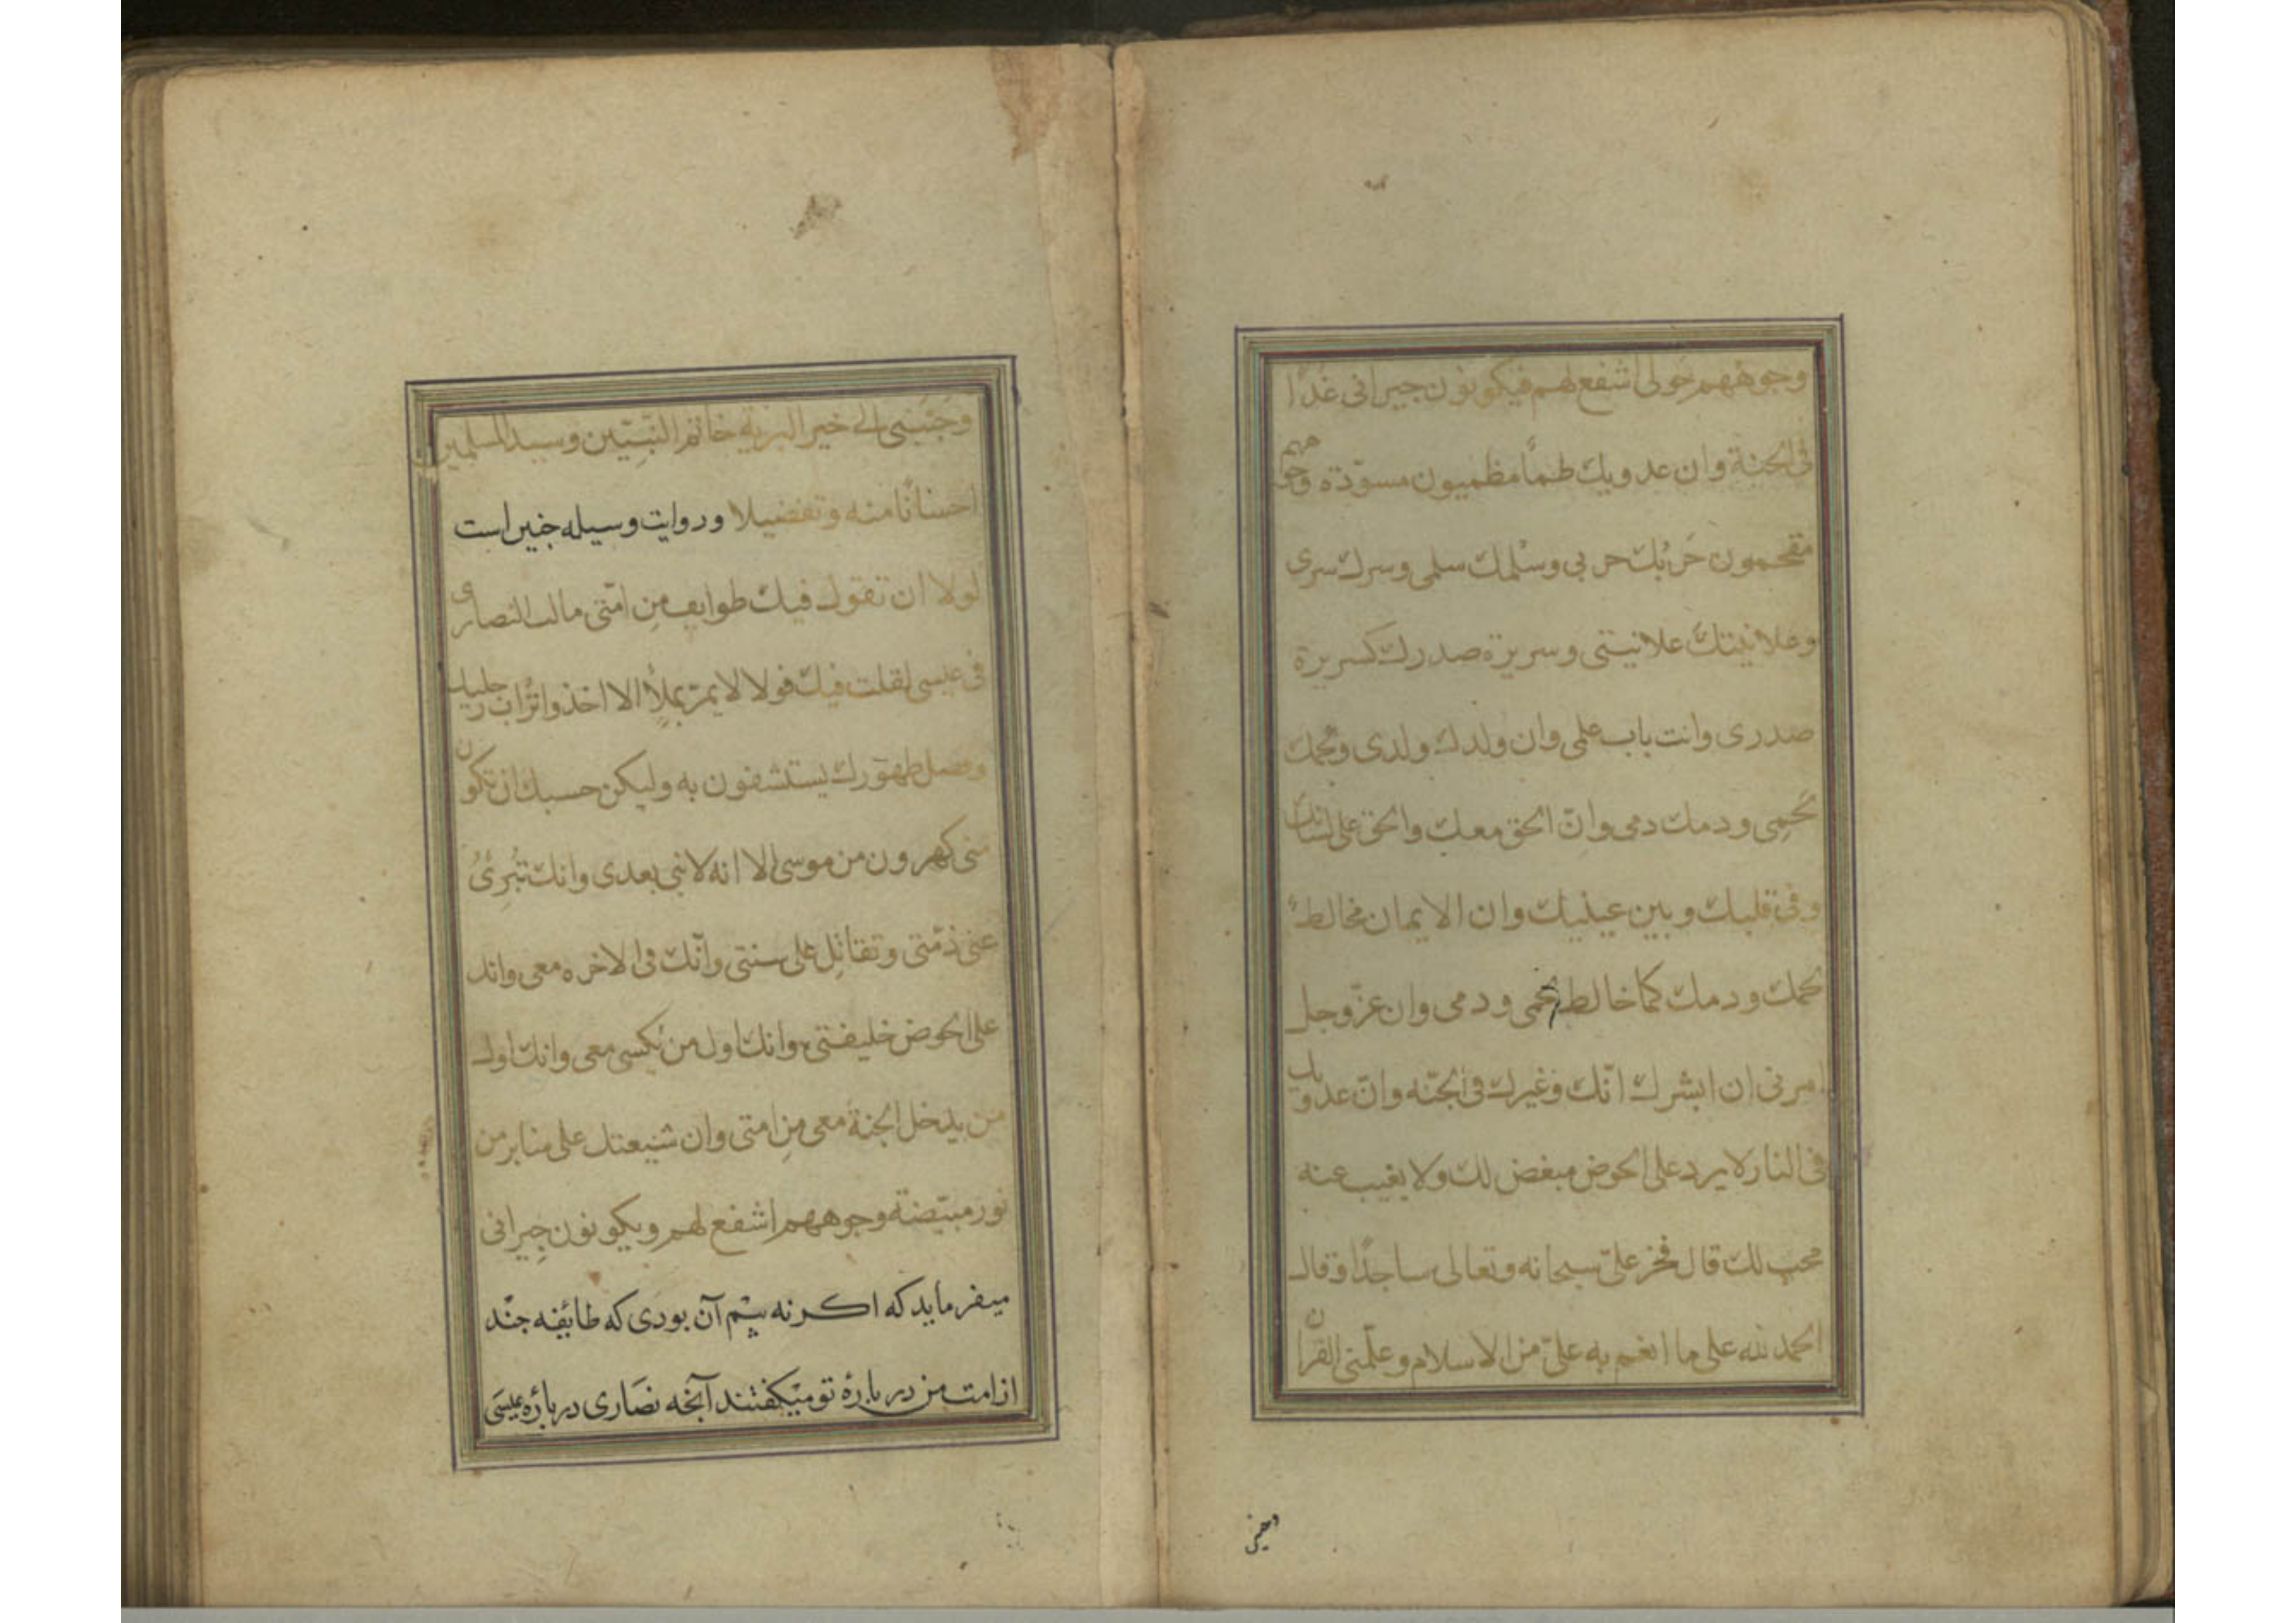 وجوههم حولی اشفع لهم فیکونون جیرانی غدًا
فی الجنة وان عدویك ظمأ مظمیون مسوّدة وجوههم
مقحمون حَرْبُك حربی وسْلمك سلمی وسرك سری
وعلانیتك علانیتی وسریرة صدرك كسریرة
صدری وانت باب علمی وان ولدك ولدی ولحمك
لحمِی ودمك دمی وانّ الحق معك والحق علی لسانك
وفی قلبك وبین عینیك وان الایمان مخالط
لحمك ودمك كما خالط لحمی ودمی وان عزّوجل
امرنی ان ابشرك انّك وغیرك فی الجنّه وانّ عدویك
فی النار لا یرد علی الحوض مبغض لك ولا یغیب عنه
محب لك قال فخر علیّ سبحانه وتعالی ساجدًا وقال
الحمد لله علی ما انعم به علیّ من الاسلام وعلّمنی القرآن
وحبنی
وحَبّبنی الی خیر البریة خاتم النّبیّین وسید المسلمین
احسانًا منه وتفضیلا وروایت وسیله چنین است
لولا ان تقول فیك طوایف مِن امّتی ما قالت النصاری
فی عیسی لقلت فیك قولا لا یمرّ بملأٍ الا اخذوا تُراب رجلیك
وفضل طهورك یستشفون به ولیكن حسبك ان تكون
منی كهرون من موسی الا انه لا نبی بعدی وانك تُبرِئُ
عنی ذمّتی وتقاتِل علی سنتی وانّك فی الاخره معی وانك
علی الحوض خلیفتی وانك اول من یُكسی معی وانك اول
من یدخل الجنة معی مِن امتی وان شیعتك علی منابر من
نور مبیّضة وجوههم اشفع لهم ویكونون جِیرانی
میفرماید که اکر نه بیم آن بودی که طائفه چند
از امت من درباره تو میکفتند آنچه نصَاری درباره عیسَی